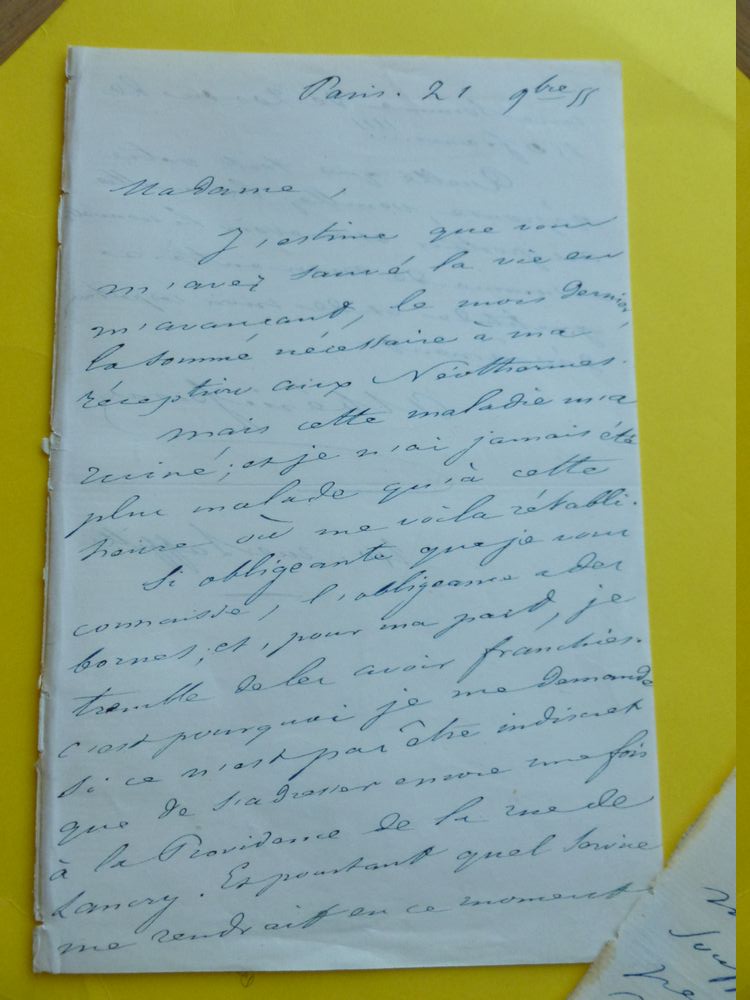 Paris. 21 9bre 55
Madame,
J'estime que vous
m'avez sauvé la vie en
m'avançant, le mois dernier,
la somme nécessaire à ma
réception aux Néothermes.
mais cette maladie m'a
ruiné; et je n'ai jamais été
plus malade qu'à cette
heure où me voila rétabli.
Si obligeante que je vous
connaisse, l'obligeance a des
bornes, et, pour ma part, je
tremble de les avoir franchies.
c'est pourquoi je me demande
si ce n'est pas être indiscret
que de s'adresser encore une fois
à la Providence de la rue de
Lancry. Et pourtant quel service
me rendrait en ce moment